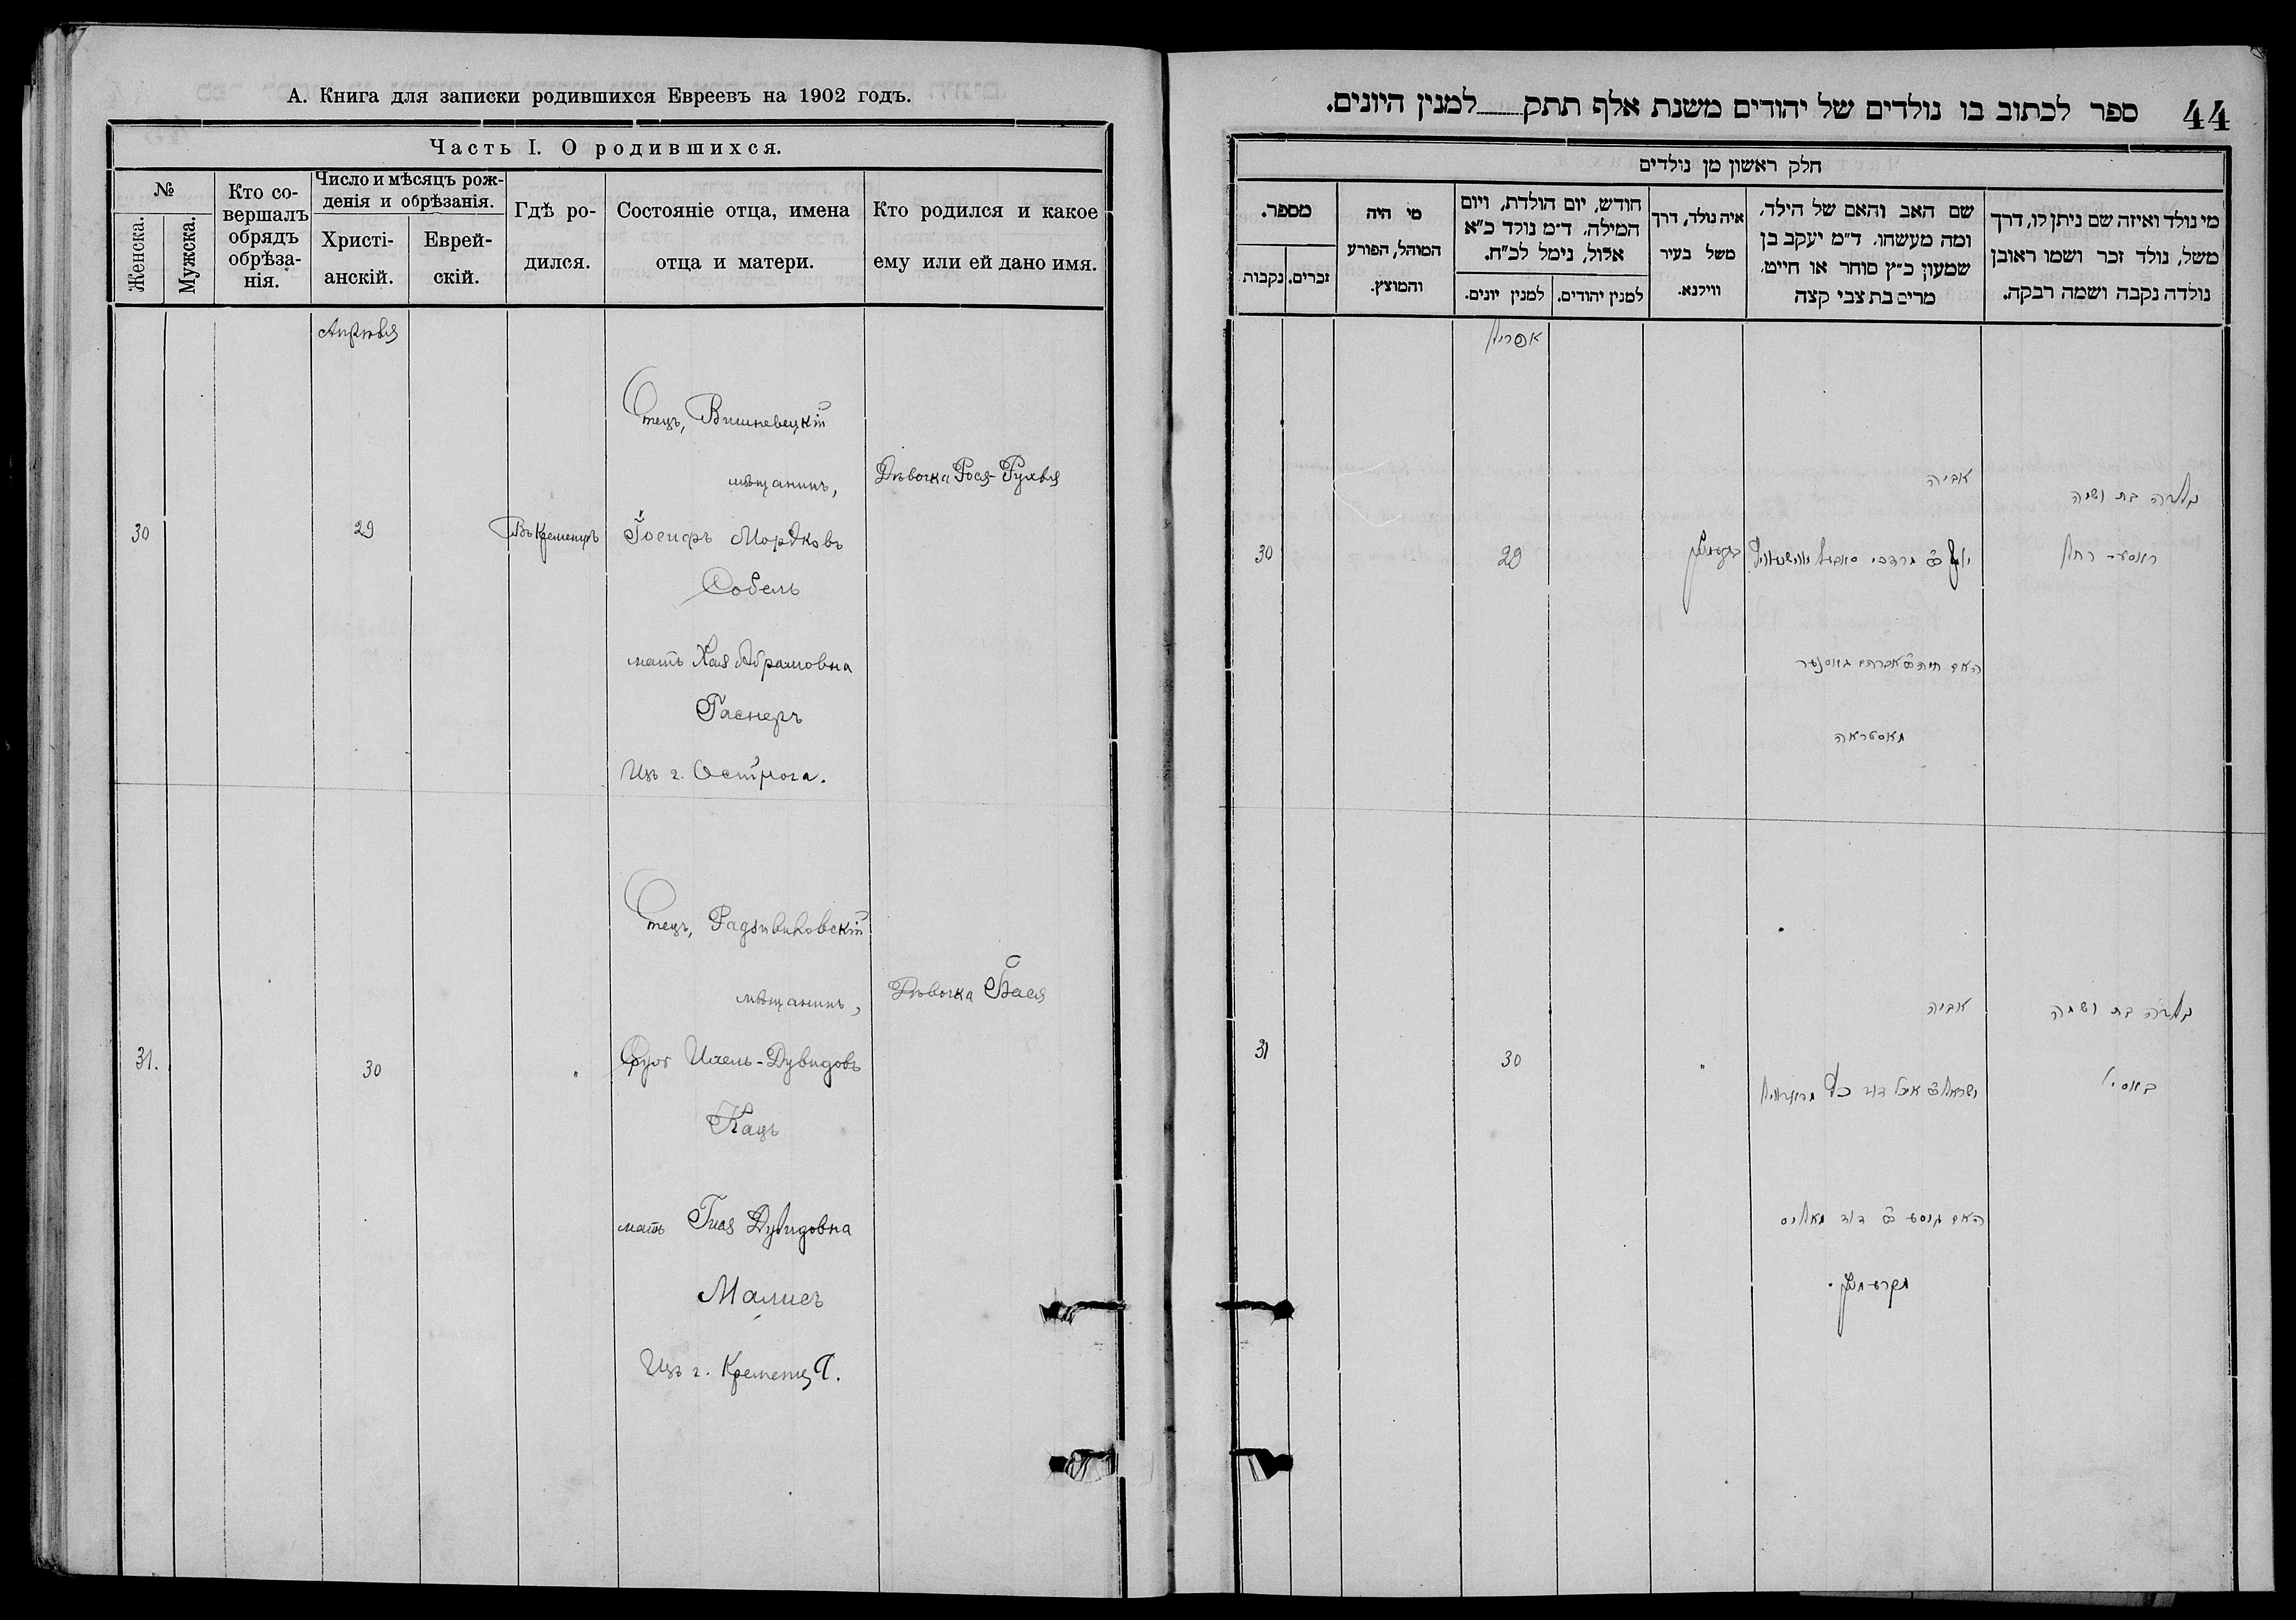 А. Книга для записки родившихся Евреевъ на 1902 годъ.
Часть I. О родившихся.
№
Женска.
Мужска.
Кто со-
вершалъ
обрядъ
обрѣза-
нія.
Число и мѣсяцъ рож-
денія и обрѣзанія.
Христі-
анскій.
Еврей-
скій.
Гдѣ ро-
дился.
Состояніе отца, имена
отца и матери.
Кто родился и какое
ему или ей дано имя.
Апрѣля
30
29
Въ Кременцѣ
Отецъ, Вишневецкій
мѣщанинъ,
Іосифъ Мордковъ
Собель
мать Хая Абрамовна
Гаснеръ
Изъ г. Острога.
Дѣвочка Рося-Рухля
31.
30
"
Отецъ, Радзивиловскій
мѣщанинъ,
Ицель-Дувидовъ
Кацъ
мать Дувидовна
Малисъ
Изъ г. Кременца.
Дѣвочка Бася
44
ספר לכתוב בו נולדים של יהודים משנת אלף תתק למנין היונים.
חלק ראשון מן נולדים
מספר.
נקבות
זכרים.
מי היה
המוהל, הפורע
והמוצץ.
חודש, יום הולדת, ויום
המילה. ד״מ נולד כ״א
אלול, נימל לכ״ח.
למנין יונים.
למנין יהודים.
איה נולד, דרך
משל בעיר
ווילנא.
שם האב והאם של הילד,
ומה מעשהו. ד״מ יעקב בן
שמעון כ״ץ סוחר או חייט,
מרים בת צבי קצה
מי נולד ואיזה שם ניתן לו, דרך
משל, נולד זכר ושמו ראובן
נולדה נקבה ושמה רבקה.
אפריל
30
29
אביה
האם חיה אברהם גאסנער
מאסטראה
נולדה בת ושמה
ראסע- רחל
31
30
"
אביה
האם דוד מאליס
נולדה בת ושמה
באסי'